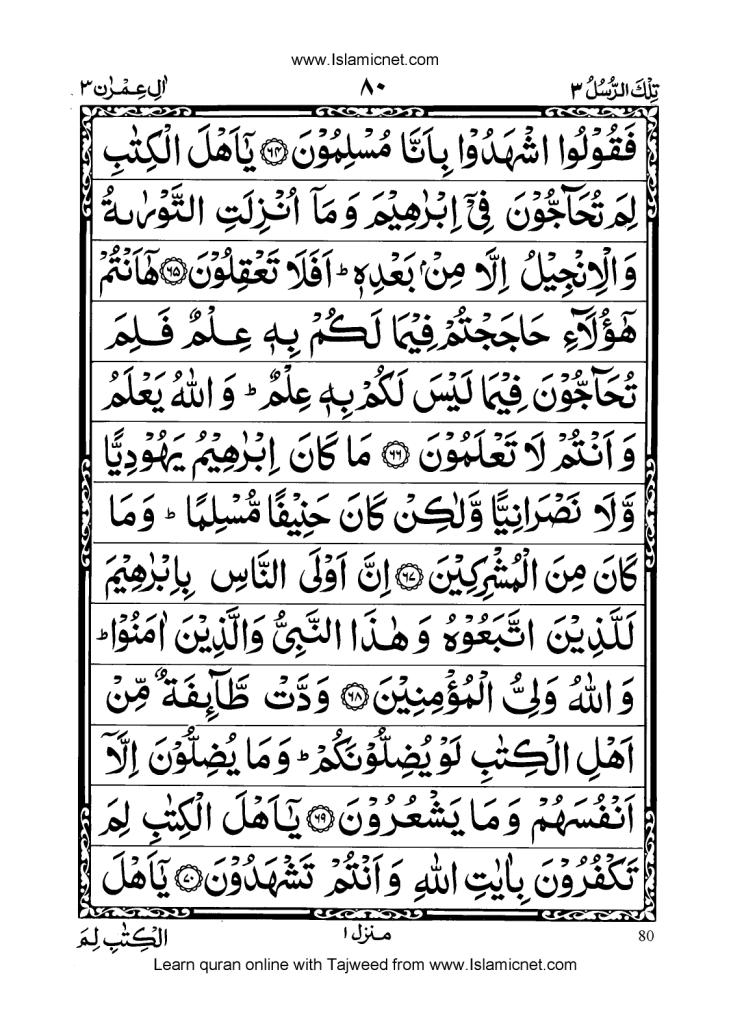 www.Islamicnet.com
تِلْكَ الرُّسُلُ ٣ ٨٠ اٰلِ عِمْرٰن ٣
فَقُوْلُوا اشْهَدُوْا بِاَنَّا مُسْلِمُوْنَ ﴿٦٤﴾ يٰٓاَهْلَ الْكِتٰبِ
لِمَ تُحَآجُّوْنَ فِيْٓ اِبْرٰهِيْمَ وَ مَآ اُنْزِلَتِ التَّوْرٰىةُ
وَالْاِنْجِيْلُ اِلَّا مِنْۢ بَعْدِهٖ ؕ اَفَلَا تَعْقِلُوْنَ ﴿٦٥﴾ هٰٓاَنْتُمْ
هٰٓؤُلَآءِ حَاجَجْتُمْ فِيْمَا لَكُمْ بِهٖ عِلْمٌ فَلِمَ
تُحَآجُّوْنَ فِيْمَا لَيْسَ لَكُمْ بِهٖ عِلْمٌ ؕ وَ اللّٰهُ يَعْلَمُ
وَ اَنْتُمْ لَا تَعْلَمُوْنَ ﴿٦٦﴾ مَا كَانَ اِبْرٰهِيْمُ يَهُوْدِيًّا
وَّلَا نَصْرَانِيًّا وَّلٰكِنْ كَانَ حَنِيْفًا مُّسْلِمًا ؕ وَ مَا
كَانَ مِنَ الْمُشْرِكِيْنَ ﴿٦٧﴾ اِنَّ اَوْلَى النَّاسِ بِاِبْرٰهِيْمَ
لَلَّذِيْنَ اتَّبَعُوْهُ وَ هٰذَا النَّبِيُّ وَالَّذِيْنَ اٰمَنُوْا ؕ
وَ اللّٰهُ وَلِيُّ الْمُؤْمِنِيْنَ ﴿٦٨﴾ وَدَّتْ طَّآئِفَةٌ مِّنْ
اَهْلِ الْكِتٰبِ لَوْ يُضِلُّوْنَكُمْ ؕ وَ مَا يُضِلُّوْنَ اِلَّآ
اَنْفُسَهُمْ وَ مَا يَشْعُرُوْنَ ﴿٦٩﴾ يٰٓاَهْلَ الْكِتٰبِ لِمَ
تَكْفُرُوْنَ بِاٰيٰتِ اللّٰهِ وَ اَنْتُمْ تَشْهَدُوْنَ ﴿٧٠﴾ يٰٓاَهْلَ
80 منزل ١ الْكِتٰبِ لِمَ
Learn quran online with Tajweed from www.Islamicnet.com